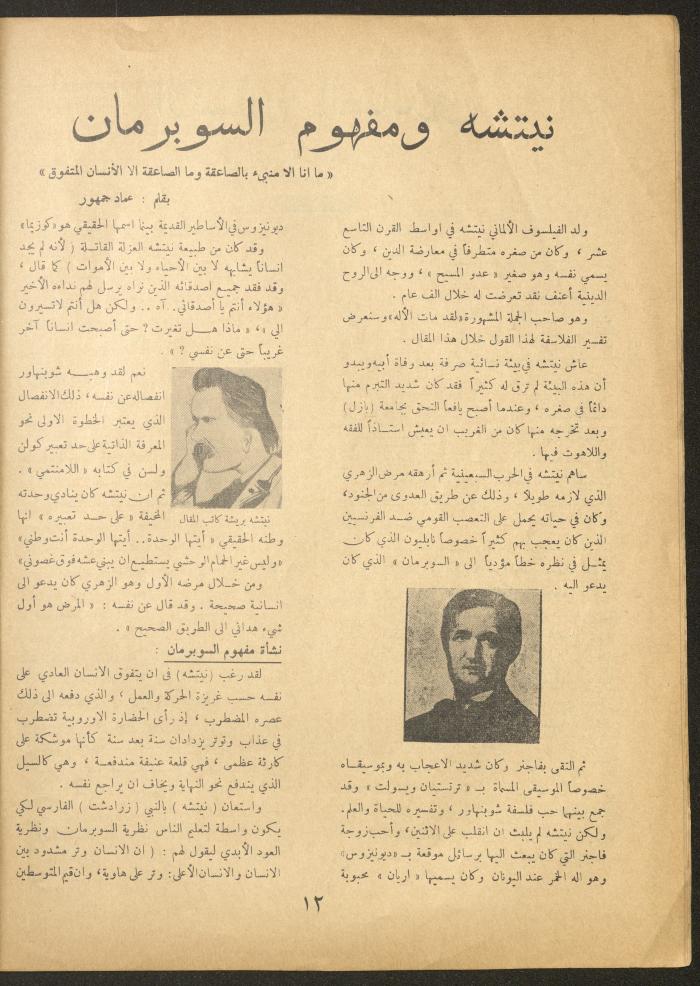 نيتشه ومفهوم السوبرمان
« ما انا الا منبىء بالصاعقة وما الصاعقة الا الأنسان المتفوق »
بقلم : عماد جمهور
ولد الفيلسوف الألماني نيتشه في اواسط القرن التاسع
عشر ، وكان من صغره متطرفاً في معارضة الدين ، وكان
يسمي نفسه وهو صغير « عدو المسيح » ، ووجه الى الروح
الدينية أعنف نقد تعرضت له خلال الف عام .
وهو صاحب الجملة المشهورة «لقد مات الأله» وسنعرض
تفسير الفلاسفة لهذا القول خلال هذا المقال .
عاش نيتشه في بيئة نسائية صرفة بعد وفاة أبيه ويبدو
أن هذه البيئة لم ترق له كثيراً فقد كان شديد التبرم منها
دائماً في صغره ، وعندما أصبح يافعاً التحق بجامعة (بازل)
وبعد تخرجه منها كان من الغريب ان يعيش استاذاً للفقه
واللاهوت فيها .
ساهم نيتشه في الحرب السبعينية ثم أرهقه مرض الزهري
الذي لازمه طويلاً ، وذلك عن طريق العدوى من الجنود،
وكان في حياته يحمل على التعصب القومي ضد الفرنسيين
الذين كان يعجب بهم كثيراً خصوصاً نابليون الذي كان
يمثل في نظره خطاً مؤدياً الى « السوبرمان » الذي كان
يدعو اليه .
ثم التقى بفاجنر وكان شديد الاعجاب به وبموسيقاه
خصوصاً الموسيقى المسماة بـ « ترتستيان ويسولت » وقد
جمع بينهما حب فلسفة شوبنهاور ، وتفسيره للحياة والعلم.
ولكن نيتشه لم يلبث ان انقلب على الاثنين، وأحب زوجة
فاجنر التي كان يبعث اليها برسائل موقعة بـ «ديونيزوس»
وهو اله الخمر عند اليونان وكان يسميها « اريان » محبوبة
ديونيزوس في الأساطير القديمة بينما اسمها الحقيقي هو «كوزيما»
وقد كان من طبيعة نيتشه العزلة القاتلة ( لأنه لم يجد
انساناً يشابهه لا بين الأحياء ولا بين الأموات ) كما قال ،
وقد فقد جميع اصدقائه الذين نراه يرسل لهم نداءه الأخير
« هؤلاء أنتم يا أصدقائي.. آه .. ولكن هل أنتم لا تسيرون
الي »، « ماذا هل تغيرت ؟ حتى أصبحت انساناً آخر
غريباً حتى عن نفسي ؟ » .
نعم لقد وهبه شوبنهاور
انفصاله عن نفسه ، ذلك الانفصال
الذي يعتبر الخطوة الاولى نحو
المعرفة الذاتية على حد تعبير كولن
ولسن في كتابه « اللامنتمي » .
ثم ان نيتشه كان ينادي وحدته
المخيفة « على حد تعبيره » انها
نيتشه بريشة كاتب المقال
وطنه الحقيقي « أيتها الوحدة .. أيتها الوحدة أنت وطني»
«وليس غير الحمام الوحشي يستطيع ان يبني عشه فوق غصوني»
ومن خلال مرضه الأول وهو الزهري كان يدعو الى
انسانية صحيحة . وقد قال عن نفسه : « المرض هو أول
شيء هداني الى الطريق الصحيح » .
نشأة مفهوم السوبرمان :
لقد رغب (نيتشه) في ان يتفوق الانسان العادي على
نفسه حسب غريزة الحركة والعمل ، والذي دفعه الى ذلك
عصره المضطرب ، إذ رأى الحضارة الاوروبية تضطرب
في عذاب وتوتر يزدادان سنة بعد سنة كأنها موشكة على
كارثة عظمى ، فهي قلعة عنيفة مندفعة ، وهي كالسيل
الذي يندفع نحو النهاية ويخاف ان يراجع نفسه .
واستعان ( نيتشه ) بالنبي ( زرادشت ) الفارسي لكي
يكون واسطة لتعليم الناس نظرية السوبرمان ونظرية
العود الأبدي ليقول لهم : ( ان الانسان وتر مشدود بين
الانسان والانسان الأعلى: وتر على هاوية، وان قيم المتوسطين
١٢